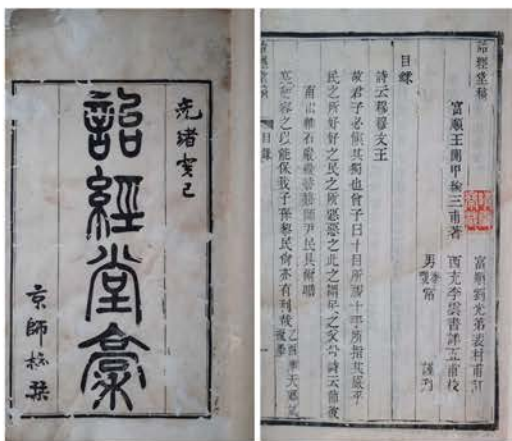 光緒癸巳
詒經堂稾
京師校栞
詒經堂稿
富順劉光第裴村甫訂
西充李雲書
五甫校
男
謹刊
富順王
甲
三甫著
目錄
詩云穆穆文王
故君子必慎其獨也曾子曰十目所視十手所指其嚴乎
民之所好好之民之所惡惡之此之謂民之父母詩云節彼
南山維石巖巖赫赫師尹民具爾瞻
寔能容之以能保我子孫黎民尚亦有利哉
目錄